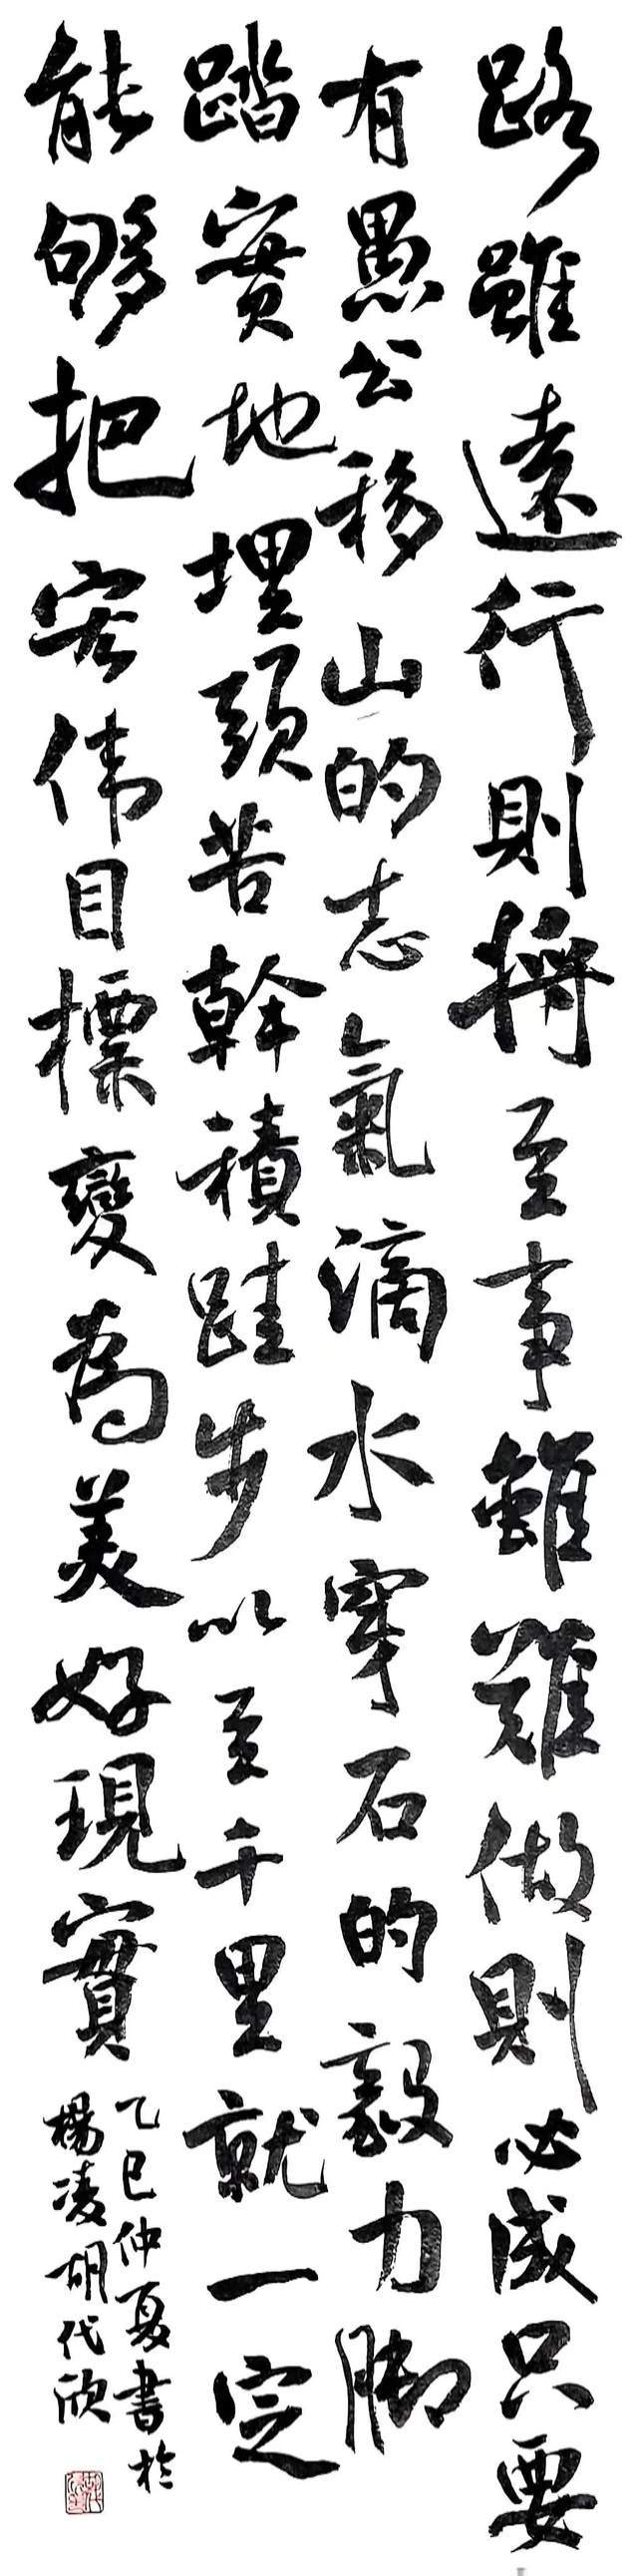 路雖遠行則將至事雖難做則必成只要
有愚公移山的志氣滴水穿石的毅力脚
踏實地埋頭苦幹積跬步以至千里就一定
能够把宏伟目標變為美好現實
乙巳仲夏書於
楊凌胡代欣